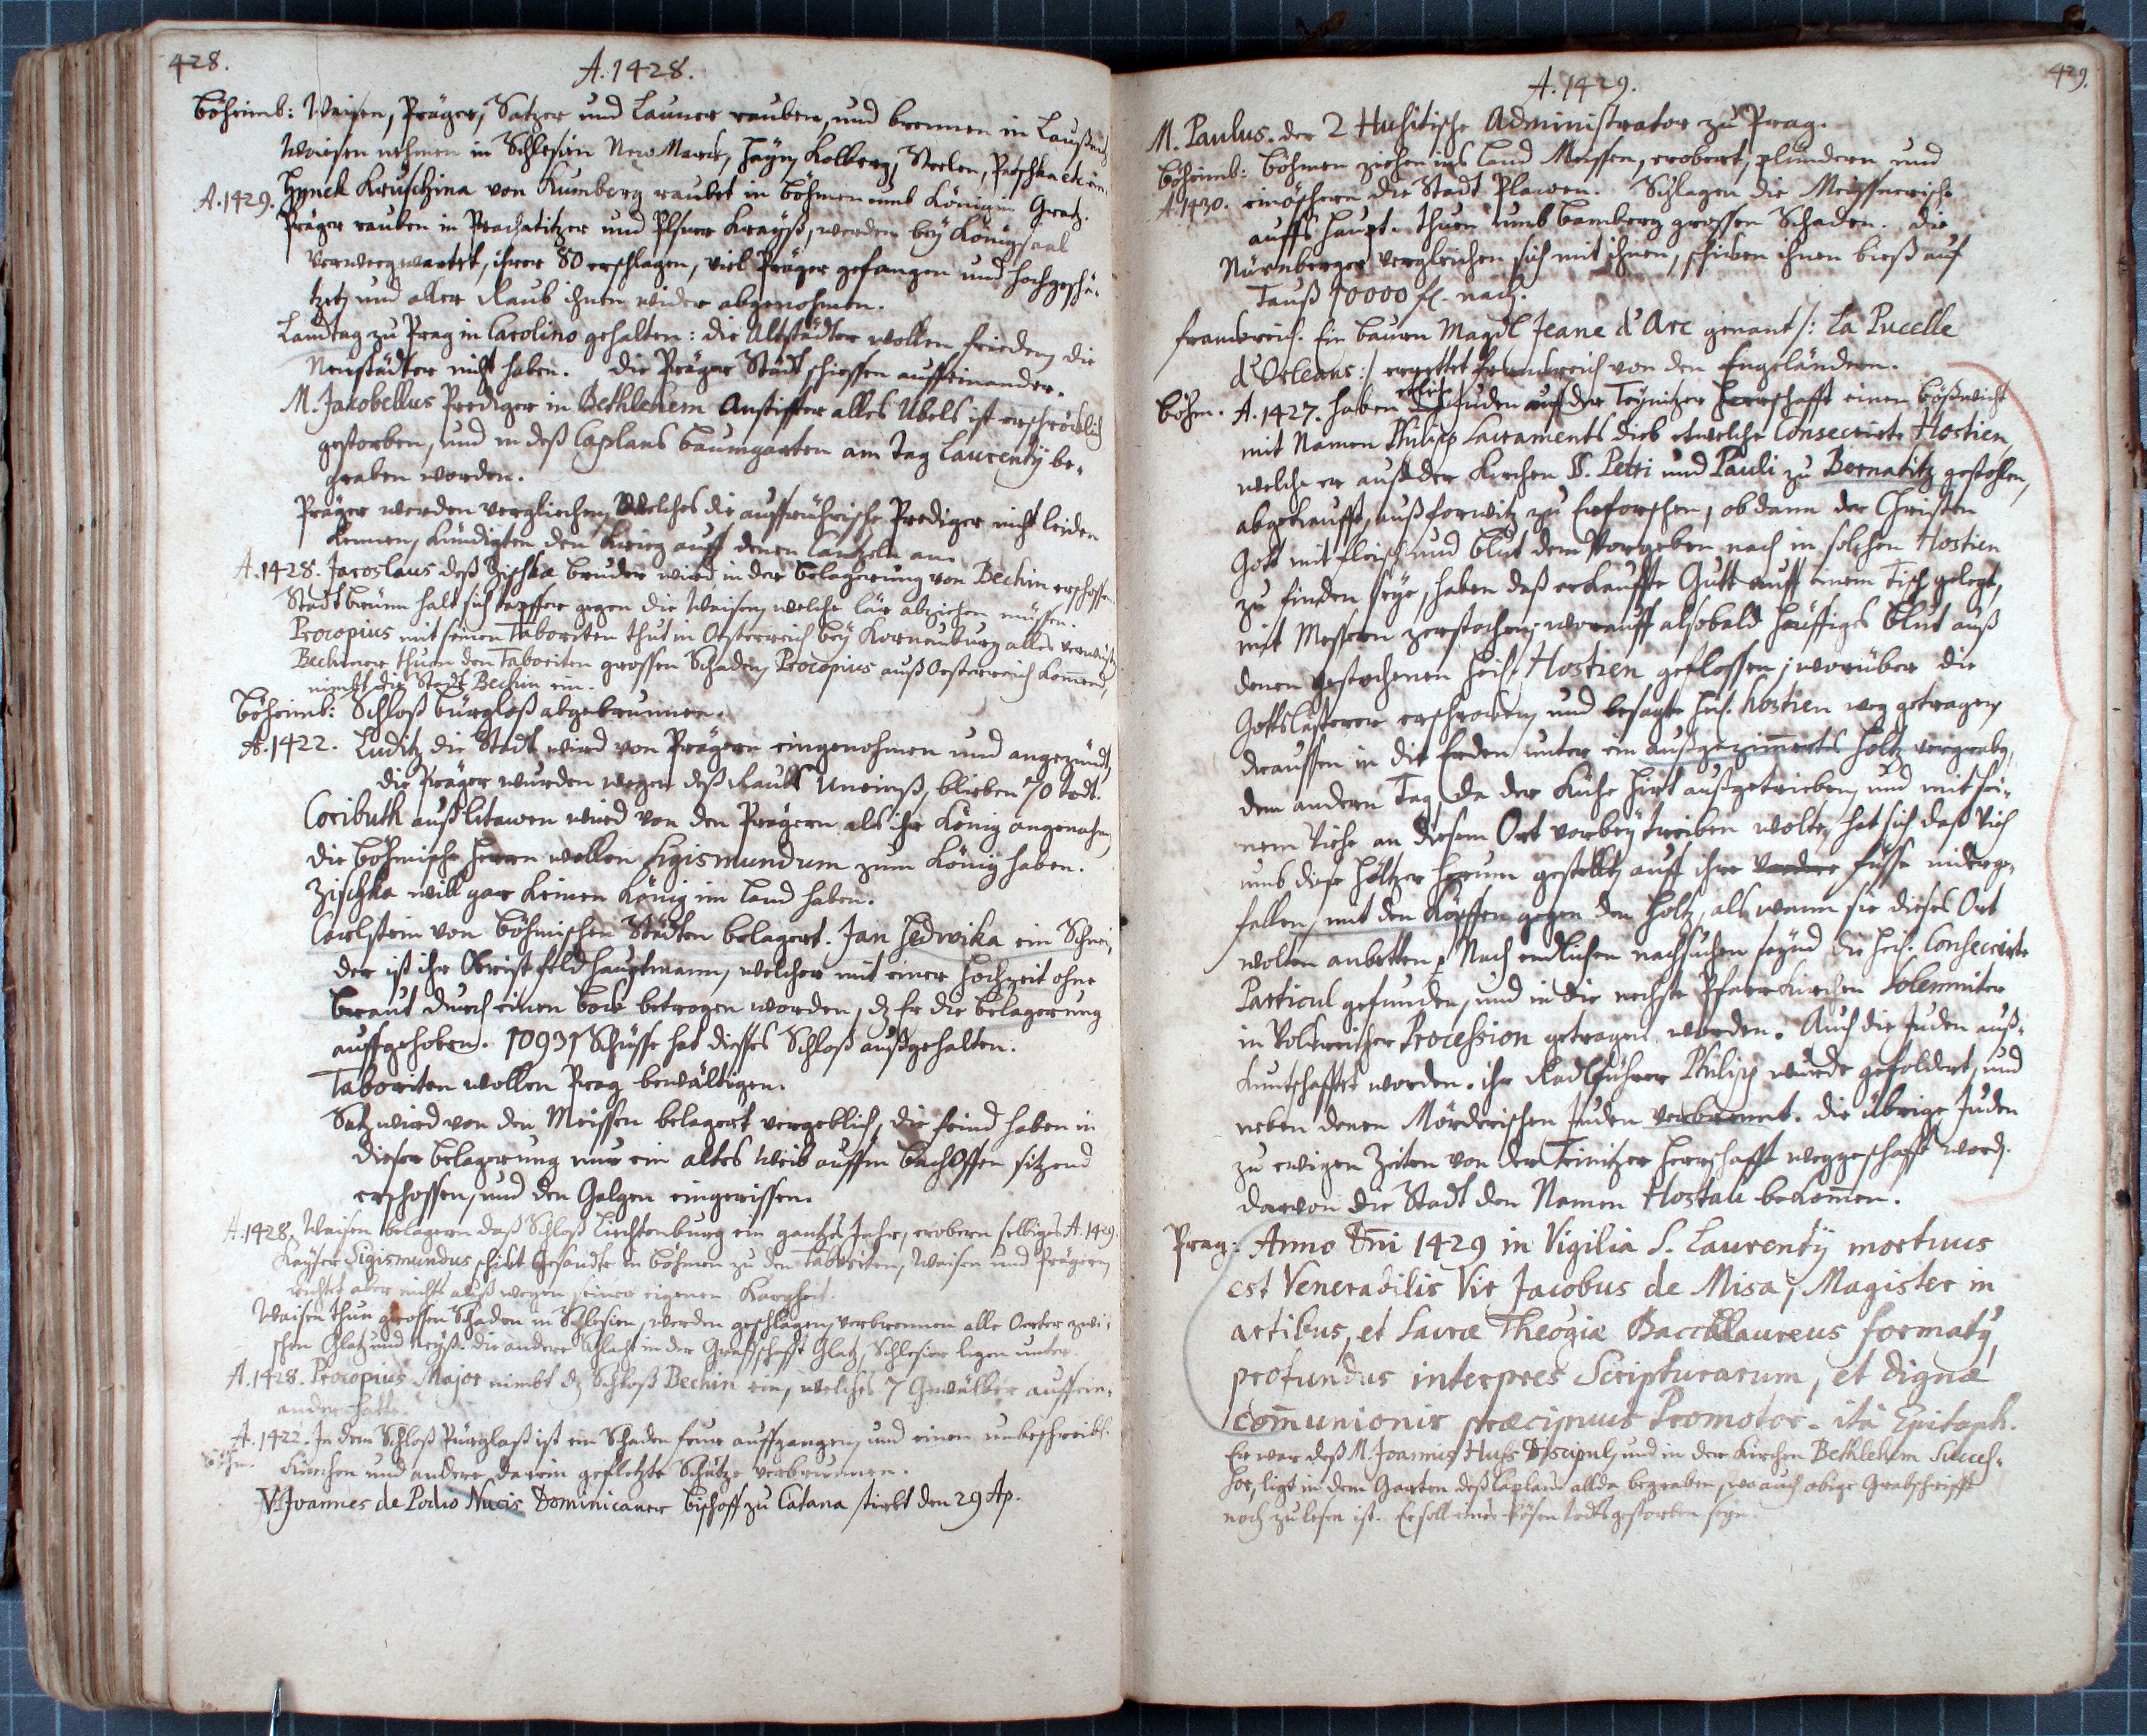 428.
A. 1428.
Böheimb: Waisen, Präger, Satzer und Launer rauben, und brennen in Laußnitz
Waisen nehmen in Schlesien New Marck, Hayn, Kolberg, Strelen, Patschka etc. ein.
A. 1429. Hynek Kruschina von Kumberg raubet in Böhmen umb Königin Gratz.
Präger rauben in Prachatitzer und Plsner Krayß, werden bey Königsaal
verwegwartet, ihrer 80 erschlagen, viel Präger gefangen und hochgeschä-
tzet, und aller Raub ihnen wider abgenohmen.
Landtag zu Prag in Carolino gehalten: die Altstädter wollen frieden, die
Neustädter nicht haben. Die Präger Städt schiessen auffeinander.
M. Jakobellus Prediger in Bethlehem Anstiffter alles Ubels ist erschröcklich
gestorben, und in deß Caplans baumgarten am Tag Laurentij be-
graben worden.
Präger werden verglichen, welches die auffrührische Prediger nicht leiden
kennen, kündigten den Krieg auff denen Cantzeln an.
A. 1428. Jaroslaus deß Zischka bruder wird in der belagerung von Bechin erschossen.
Stadt brünn halt sich tapffer gegen die Waisen, welche lär abziehen müssen.
Procopius mit seinen Taboriten thut in Oesterreich bey Korneuburg alles verwüsten
Bechiner thuen den Taboriten grossen Schaden, Procopius auß Oesterreich komend,
nimbt die Stadt Bechin ein.
Böheimb: Schloß bürgloß abgebrunnen.
A. 1422. Luditz die Stadt wird von Prägern eingenohmen und angezündt,
die Präger wurden wegen deß Raubs Uneinß, blieben 70 todt.
Coributh auß Litawen wird von den Prägern als ihr König angenohm,
die böhmische Herrn wollen Sigismundum zum König haben.
Zischka will gar keinen König im Land haben.
Carlstein von böhmischen Städten belagert. Jan Hedwika ein Schnei-
der ist ihr Obrist feldhauptmann, welcher mit einer Hochzeit ohne
braut durch einen bock betrogen worden, dz Er die belagerung
auffgehoben. 10931 Schüsse hat dieses Schloß außgehalten.
Taboriten wollen Prag bewältigen.
Satz wird von den Meissen belagert vergeblich, die feind haben in
dieser belagerung nur ein altes Weib auff'm bachOffen sitzend
erschossen, und den Galgen eingerissen.
A. 1428. Waisen belagern daß Schloß Liechtenburg ein gantzes Jahr, erobern selbiges A. 1429.
Kayser Sigismundus schikt Gesandte in böhmen zu den Taboriten, Waisen und Prägern,
richtet aber nichts auß wegen seiner eigenen Kargheit.
Waisen thun grossen Schaden in Schlesien, werden geschlagen, verbrennen alle Oerter zwi-
schen Glatz und Neyß. die andere Schlacht in der Graffschafft Glatz, Schlesier ligen unter.
A. 1428. Procopius Major nimbt dz Schloß Bechin ein, welches 7 Gewälber auffein-
ander hatte.
A. 1422. In dem Schloß Pürglaß ist ein Schaden feur auffgangen, und einen unbeschreibl.
böhm. Kirchen und andere darein geflehte Schätze verbrunnen.
V. Joannes de Podio Nucis Dominicaner bischoff zu Catana stirbt den 29 Ap.
429.
A. 1429.
M. Paulus. der 2 Hußitische Administrator zu Prag.
Böheimb: böhmen ziehen ins Land Meissen, erobert, plündern und
A. 1430. einäschern die Stadt Plawen. Schlagen die Meissnerische
auffs Haupt. Thuen umb Bamberg grossen Schaden. die
Nürnberger vergleichen sich mit ihnen, schicken ihnen bieß auf
Tauß 10000 fl. nach.
Franckreich. Ein bauern Magdl Jeane d'Arc genant /: La Pucelle
d'Orleans :/ errettet Franckreich von den Engeländern.
Böhm. A. 1427. haben etliche Juden auf der Teynitzer Herrschafft einen bößwicht
mit Namen Philipp Sacraments dieb etwelche Consecrirte Hostien,
welche er auß der Kirchen SS. Petri und Pauli zu Bernatitz gestohlen,
abgekaufft, auß forwitz zu Erforschen, ob dann der Christen
Gott mit fleisch und blut dem Vorgeben nach in solchen Hostien
zu finden seye, haben daß erkauffte Gutt auff einem Tisch gelegt,
mit Messern zerstochen, worauff alsobald häuffiges blut auß
denen gestochenen heil. Hostien geflossen; worüber die
Gottslästerer erschrocken, und besagte heil. hostien weg getragen,
draussen in die Erden unter ein außgezimmertes holtz vergrabn,
dem andern Tag, da der Kühe Hirt außgetrieben, und mit sei-
nem Viehe an diesem Ort vorbey treiben wolte, hat sich daß Vieh
umb dise höltzer herum gestellt, auff ihre Vordere füsse niderge-
fallen, mit den Köpffen gegen den Holtz, als wann sie dieses Ort
wolten anbetten. Nach endlichen nachsuchen seynd die heil. Consecrirte
Particul gefunden, und in die nechste Pfarrkirchen Solemniter
in Volkreicher Procession getragen worden. Auch die Juden auß-
kuntschafftet worden. ihr Radlführer Philipp wurde gefoldert, und
neben denen Mörderischen Juden verbrennt. die übrige Juden
zu ewigen Zeiten von der Teinitzer Herrschafft weggeschafft word.
darvon die Stadt den Namen Hostau bekommen.
Prag: Anno Dni 1429 in Vigilia S. Laurentij mortuus
est Venerabilis Vir Jacobus de Misa, Magister in
artibus, et Sacræ Theogiæ Baccalaureus formatg,
profundus interpres Scripturarum, et dignæ
communionis præcipuus Promotor. ita Epitaph.
Er war deß M. Joannis Huss Discipul, und in der Kirchen Bethlehem Succes-
sor, ligt in dem Garten deß Caplans allda begraben, wo auch obige Grabschrifft
noch zu lesen ist. Er soll eines bösen todts gestorben seyn.